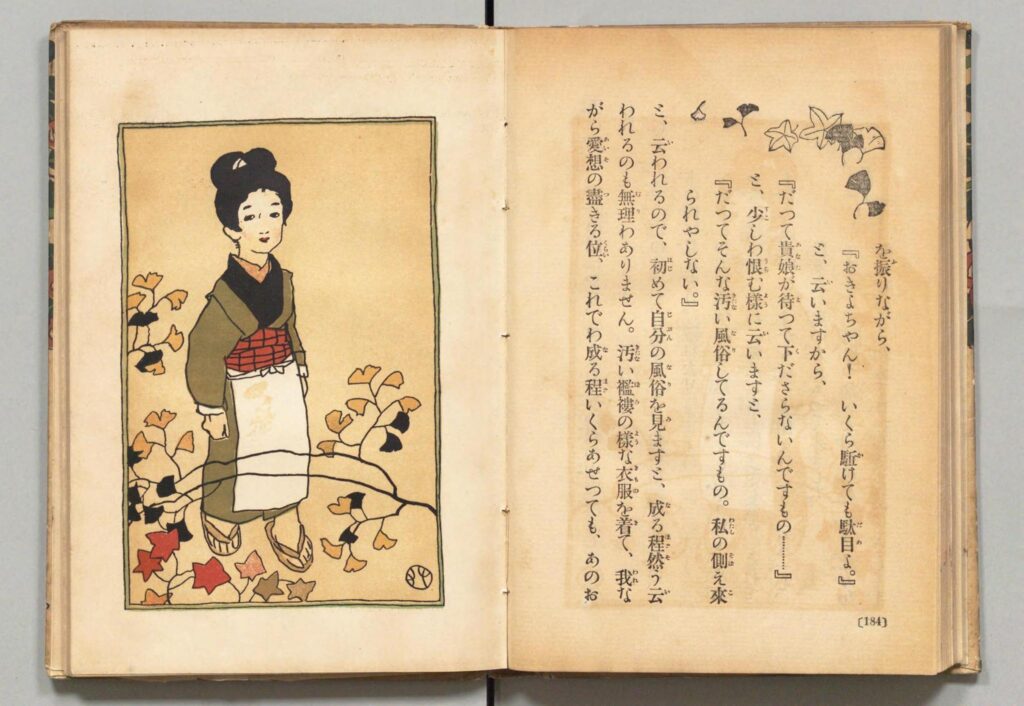 を振りながら、
『おきよちやん！　いくら駈けても駄目よ。』
と、云いますから、
『だつて貴娘が待つて下ださらないんですもの………』
と、少しわ恨む樣に云いますと、
『だつてそんな汚い風俗してるんですもの。私の側え來
られやしない。』
と、云われるので、初めて自分の風俗を見ますと、成る程然う云
われるのも無理わありません。汚い襤褸の樣な衣服を着て、我な
がら愛想の盡きる位、これでわ成る程いくらあせつても、あのお
〔184〕